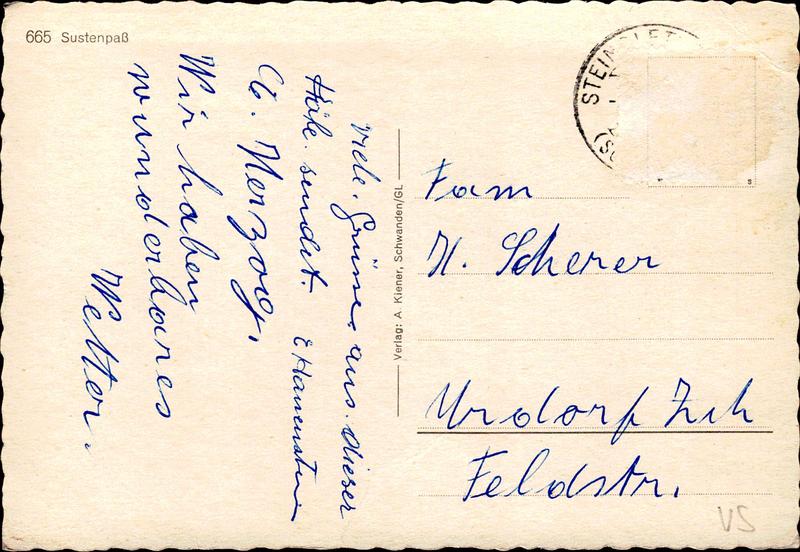 665 Sustenpaß
Viele. Grüsse. aus. dieser
Höhe. sendet.
G. Herzog.
Wir haben
wunderbares
Wetter.
Verlag: A. Kiener, Schwanden/GL
Fam
H. Scherer
Urdorf Zch
Feldstr.
VS